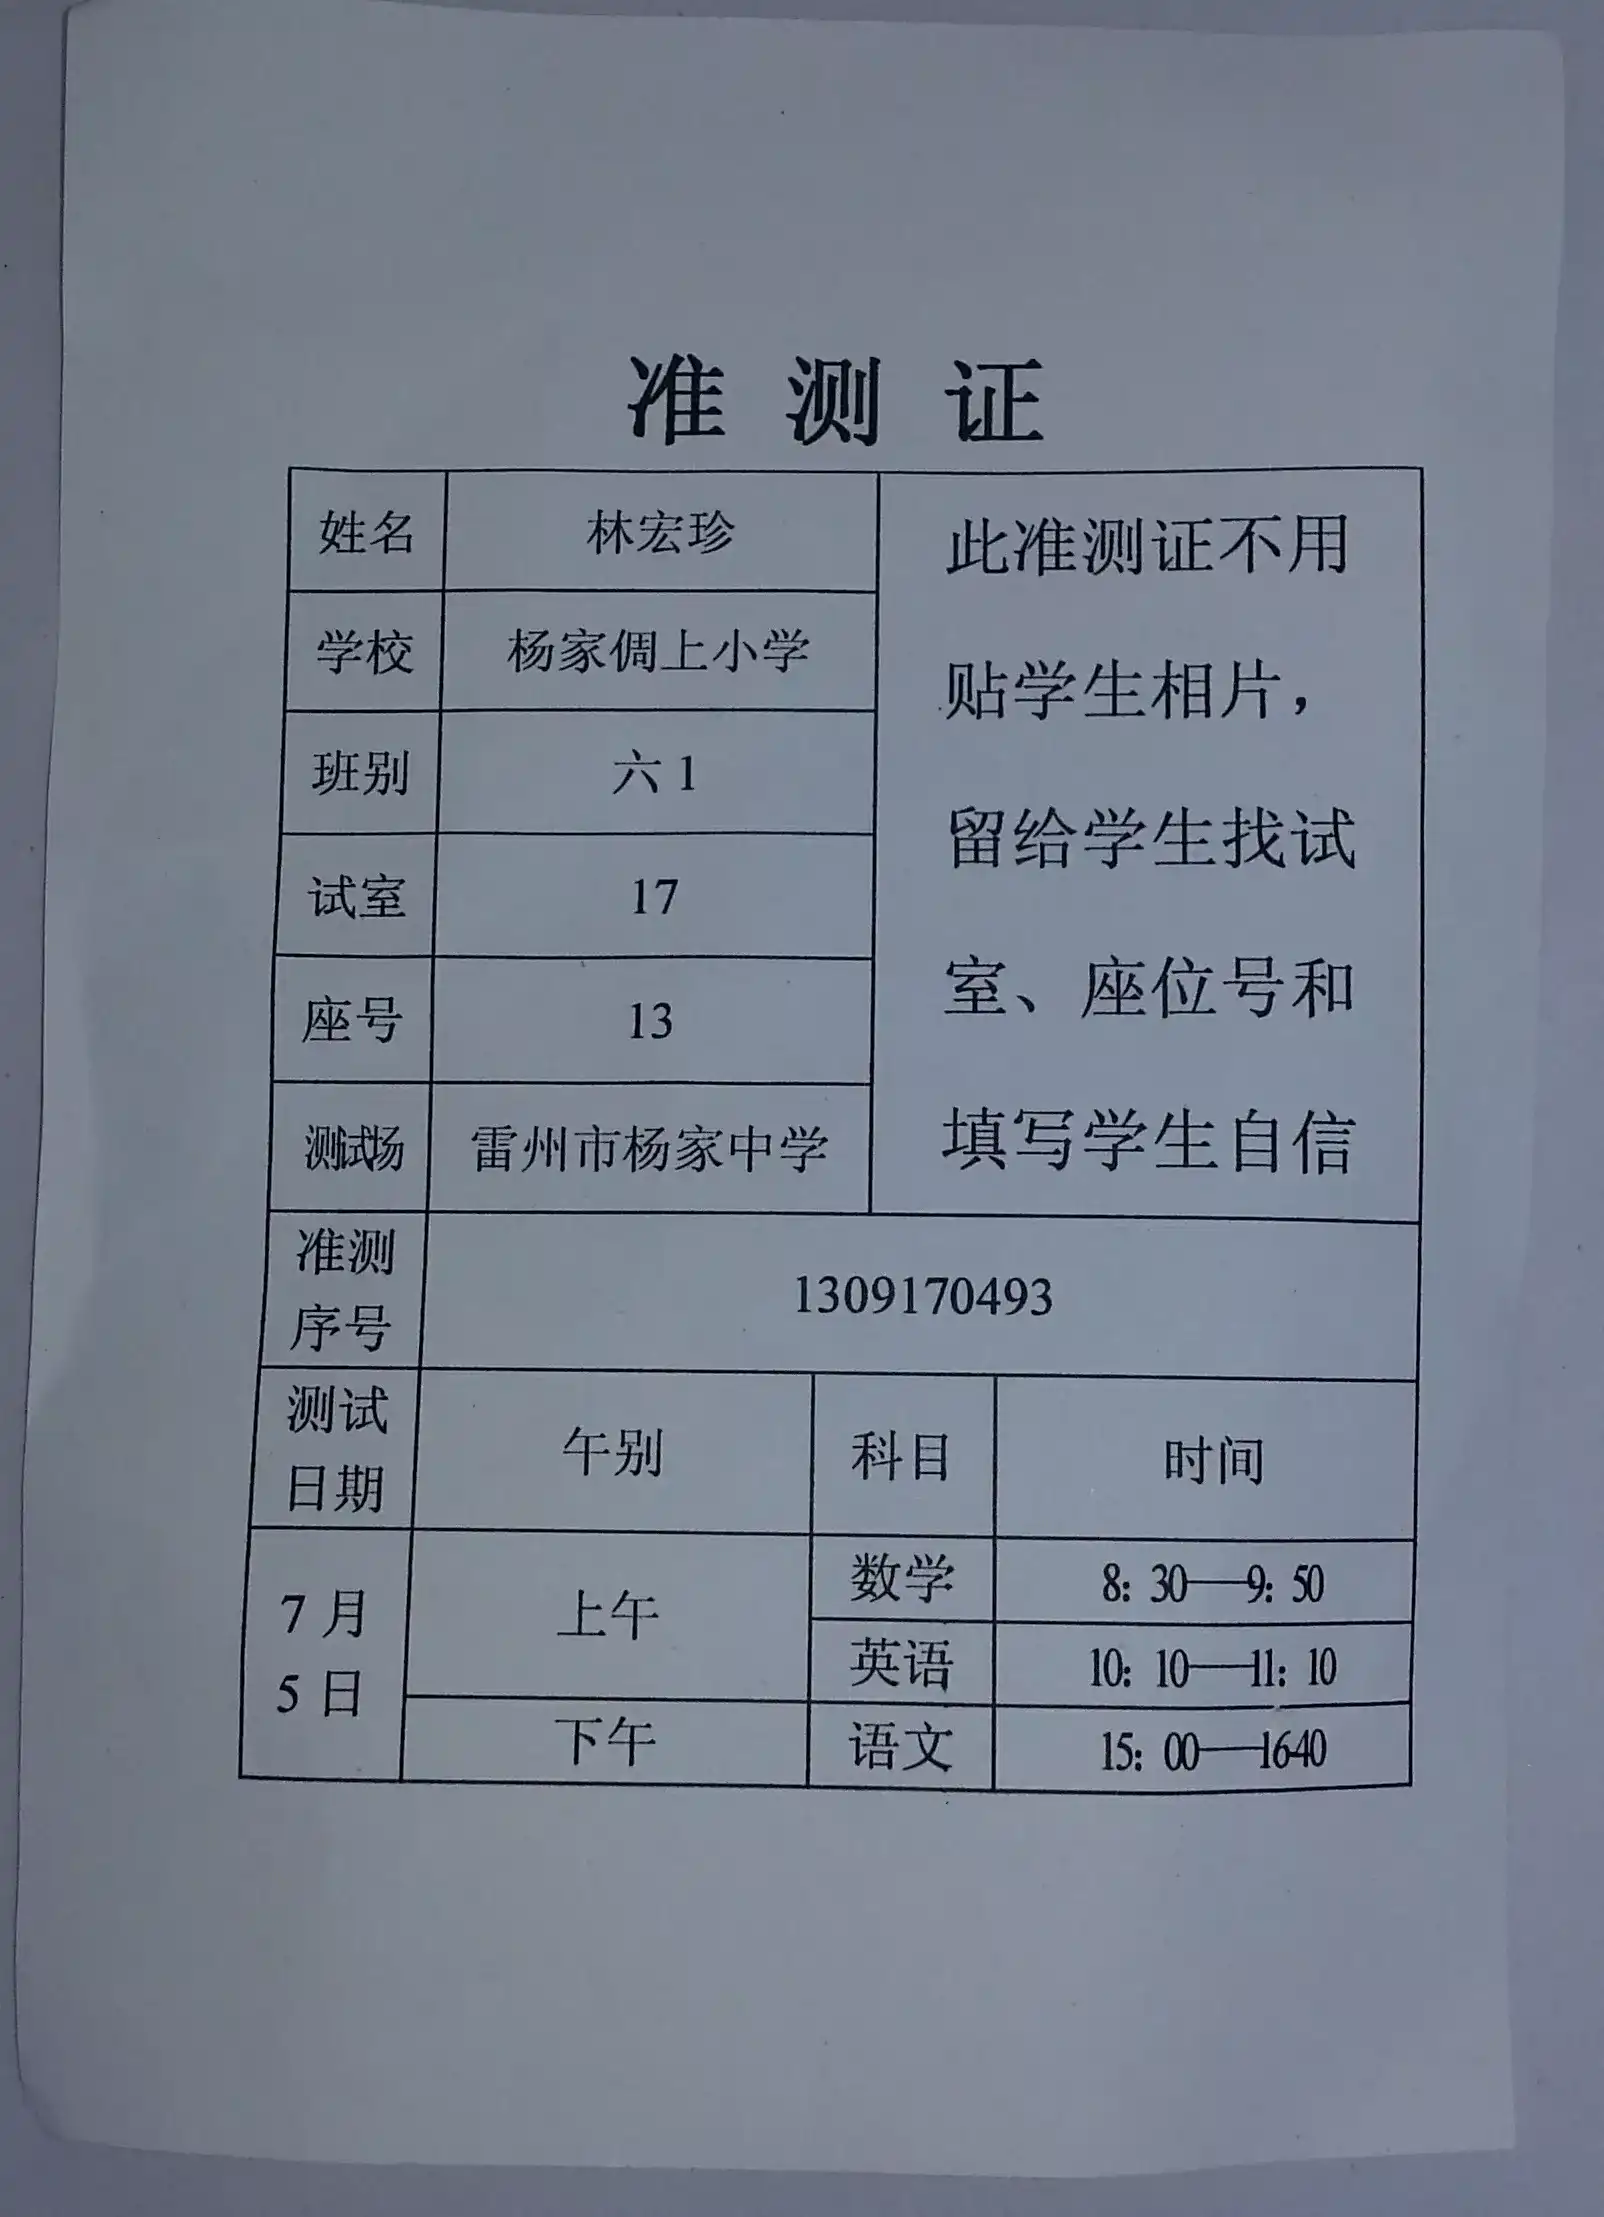 准测证
姓名 林宏珍
学校 杨家倜上小学
班别 六1
试室 17
座号 13
测试场 雷州市杨家中学
此准测证不用
贴学生相片，
留给学生找试
室、座位号和
填写学生自信
准测
序号
1309170493
测试
日期
午别 科目 时间
7月
5日
上午
数学 8：30—9：50
英语 10：10—11：10
下午 语文 15：00—1640